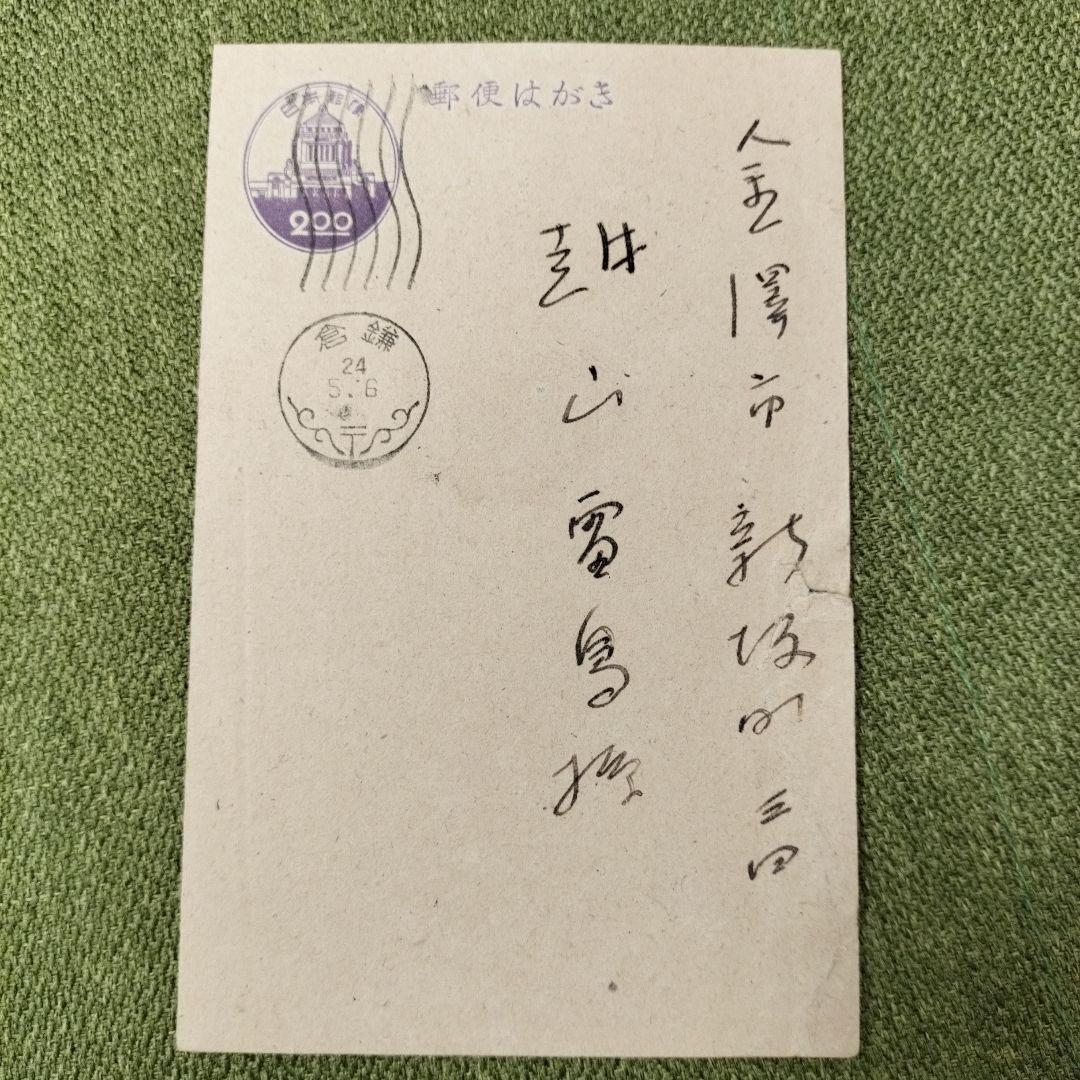 郵便はがき
日本郵便
200
倉鎌
24
5.6
金澤市龍坂町三四
越山雷鳥様